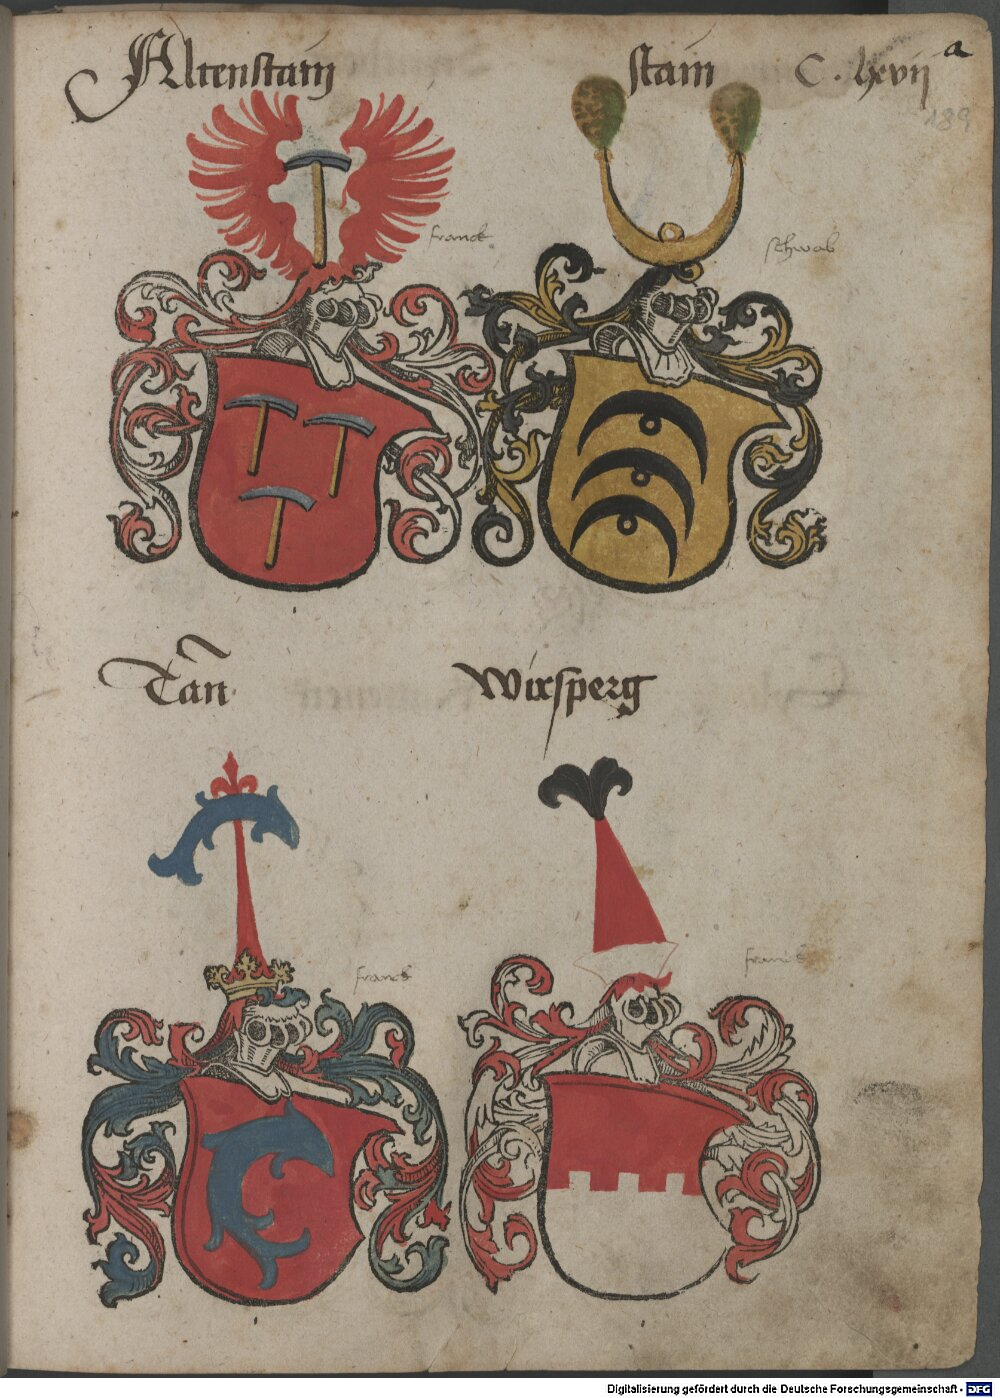 Altenstain
stain C. lxvij a
189
franck
schwab
Tan̄
Wirsperg
franck
franck
Digitalisierung gefördert durch die Deutsche Forschungsgemeinschaft - DFG